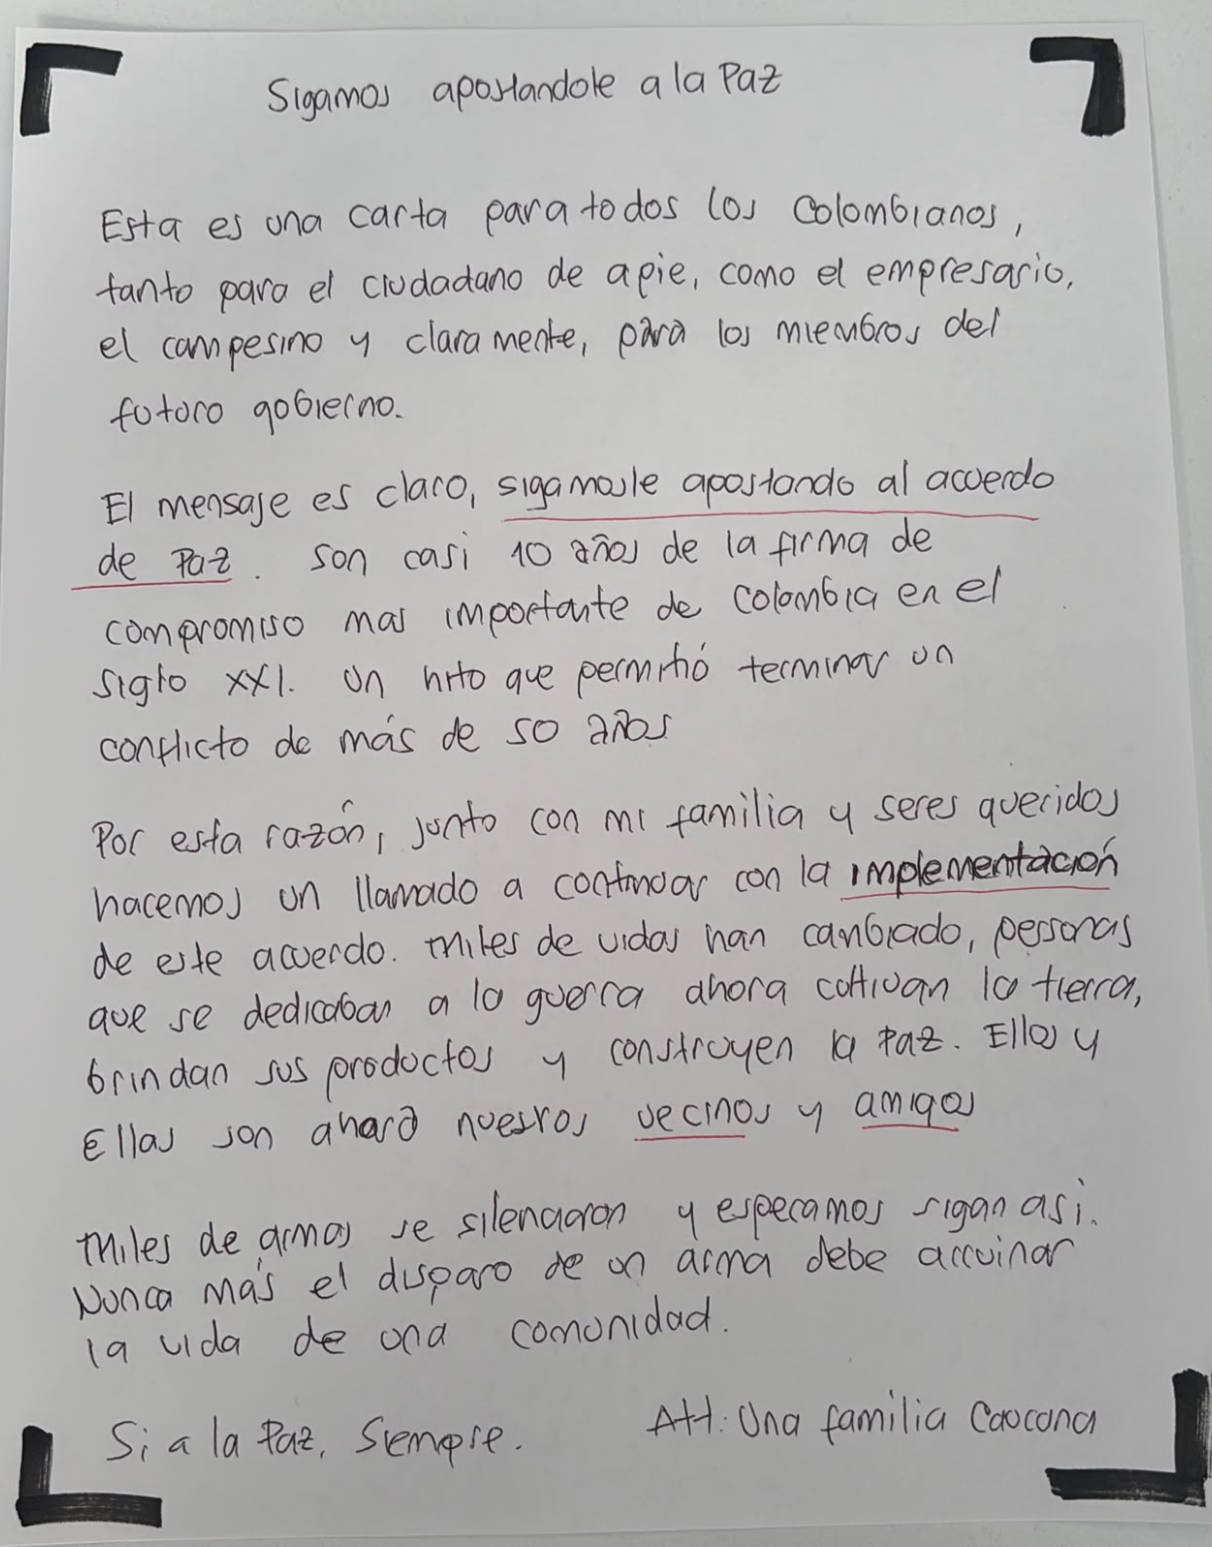 Sigamos apostandole a la Paz
Esta es una carta para todos los colombianos,
tanto para el ciudadano de apie, como el empresario,
el campesino y claramente, para los miembros del
futuro gobierno.
El mensaje es claro, sigamosle apostando al acuerdo
de Paz. Son casi 10 años de la firma de
compromiso mas importante de Colombia en el
siglo XXI. Un hito que permitió terminar un
conflicto de más de 50 años
Por esta razón, junto con mi familia y seres queridos
hacemos un llamado a continuar con la implementación
de este acuerdo. Miles de vidas han canbiado, personas
que se dedicaban a la guerra ahora cultivan la tierra,
brindan sus productos y construyen la Paz. Ellos y
Ellas son ahora nuesros vecinos y amigos
Miles de armas se silenciaron y esperamos sigan asi.
Nunca más el disparo de un arma debe arruinar
la vida de una comunidad.
Si a la Paz, Siempre.
Att: Una familia Caucana